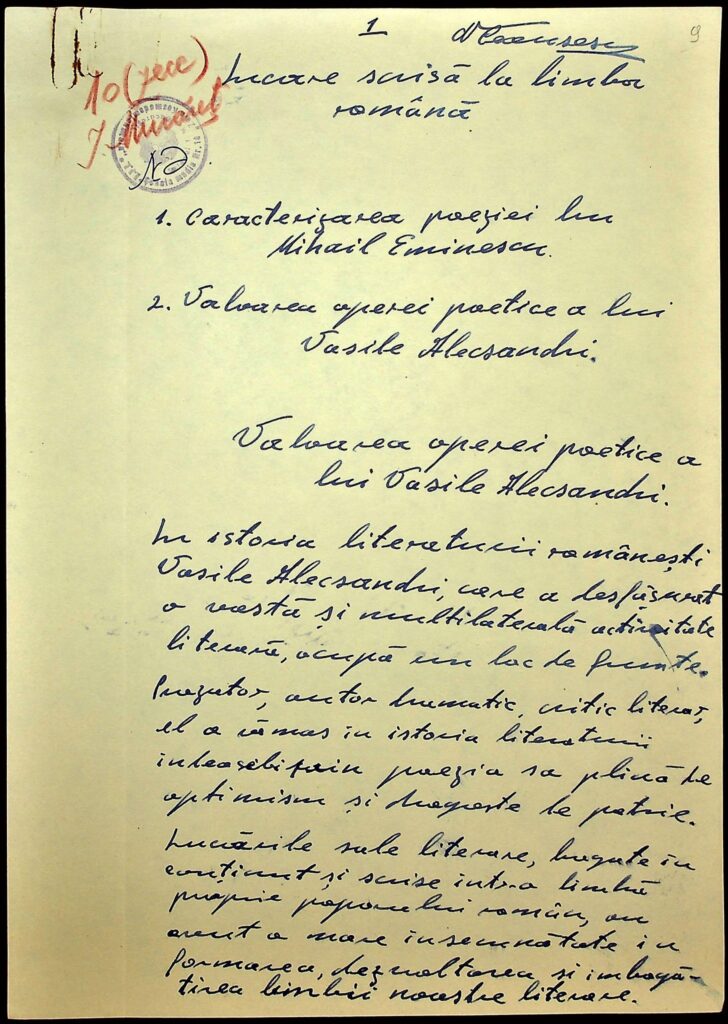 1
9
10 (zece)
Lucare scrisă la limba
română
No
1. Caracterizarea poeziei lui
Mihail Eminescu.
2. Valoarea operei poetice a lui
Vasile Alecsandri.
Valoarea operei poetice a
lui Vasile Alecsandri.
In istoria literaturii românești
Vasile Alecsandri, care a desfășurat
o vastă și multilaterală activitate
literară, ocupă un loc de frunte.
Prozator, autor dramatic, critic literar,
el a rămas in istoria literaturii
indeosebi prin poezia sa plină de
optimism și dragoste de patrie.
Lucrările sale literare, bogate in
conținut și scrise intr-o limbă
proprie poporului român, au
avut o mare insemnătate in
formarea, dezvoltarea și imbogă-
țirea limbii noastre literare.